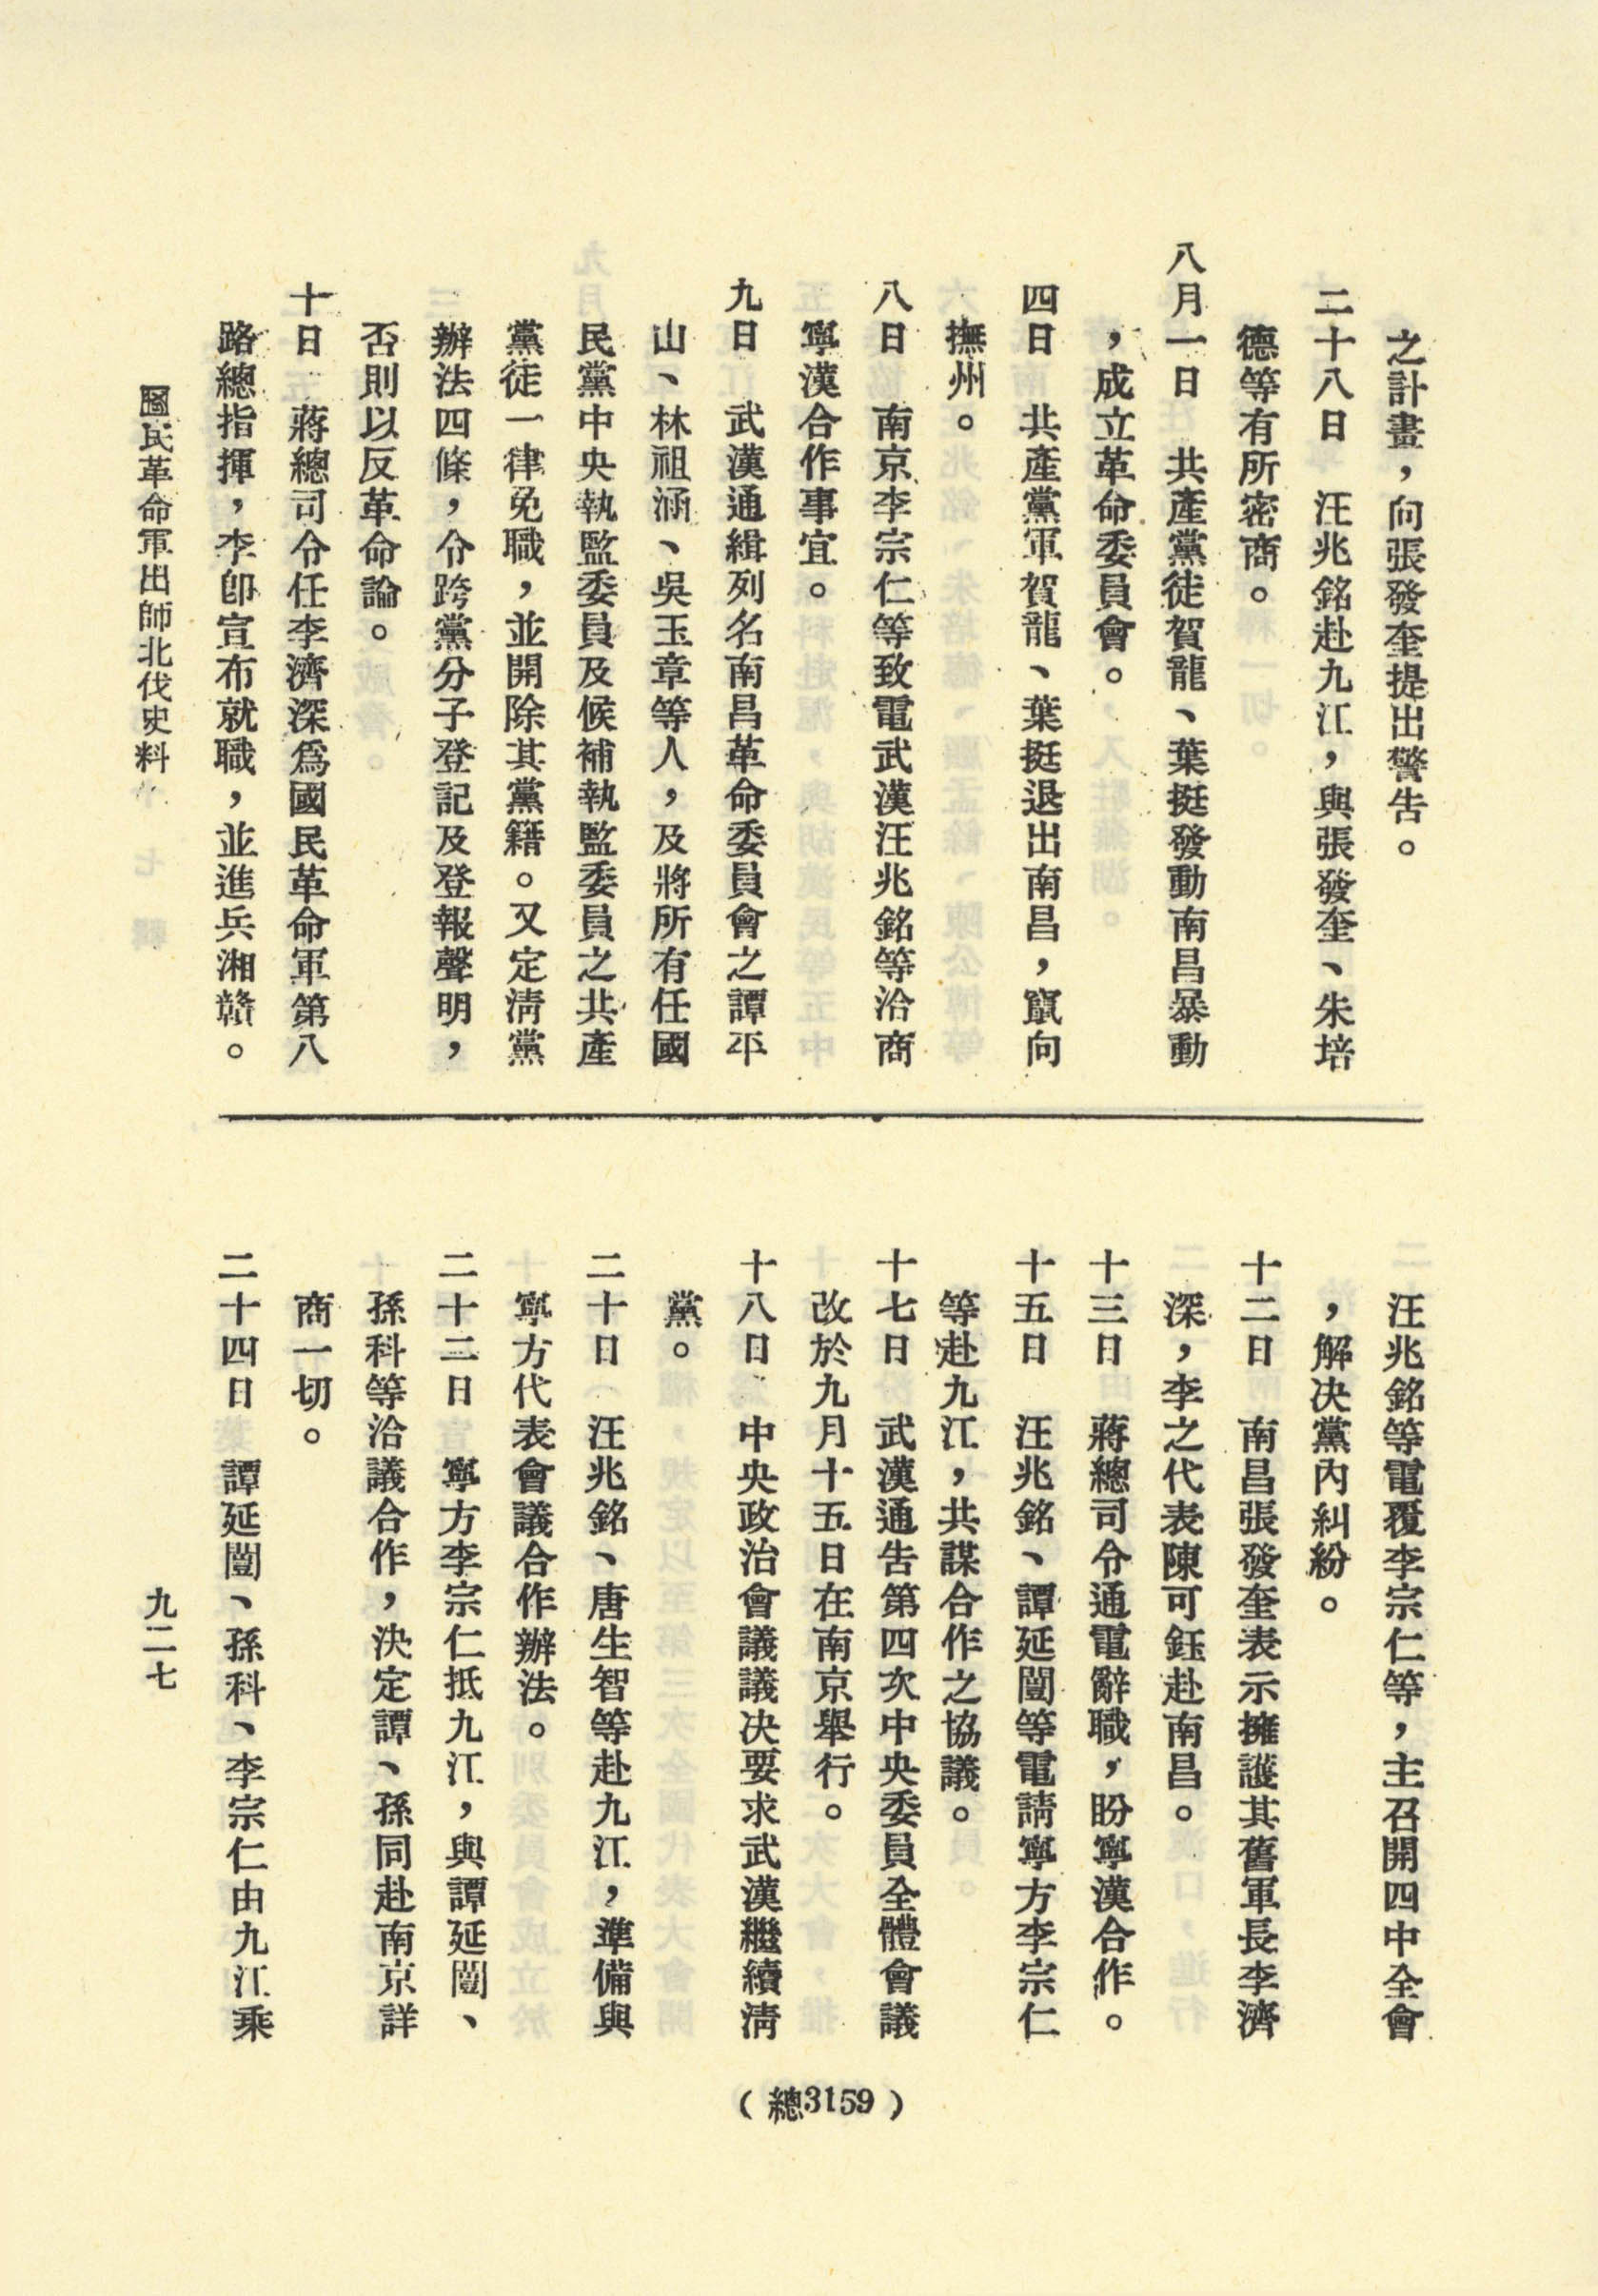 之計畫，向張發奎提出警告。
二十八日　汪兆銘赴九江，與張發奎、朱培
德等有所密商。
八月一日　共產黨徒賀龍、葉挺發動南昌暴動
，成立革命委員會。
四日　共產黨軍賀龍、葉挺退出南昌，竄向
撫州。
八日　南京李宗仁等致電武漢汪兆銘等洽商
寧漢合作事宜。
九日　武漢通緝列名南昌革命委員會之譚平
山、林祖涵、吳玉章等人，及將所有任國
民黨中央執監委員及候補執監委員之共產
黨徒一律免職，並開除其黨籍。又定淸黨
辦法四條，令跨黨分子登記及登報聲明，
否則以反革命論。
十日　蔣總司令任李濟深爲國民革命軍第八
路總指揮，李卽宣布就職，並進兵湘贛。
汪兆銘等電覆李宗仁等，主召開四中全會
，解决黨內糾紛。
十二日　南昌張發奎表示擁護其舊軍長李濟
深，李之代表陳可鈺赴南昌。
十三日　蔣總司令通電辭職，盼寧漢合作。
十五日　汪兆銘、譚延闓等電請寧方李宗仁
等赴九江，共謀合作之協議。
十七日　武漢通告第四次中央委員全體會議
改於九月十五日在南京舉行。
十八日　中央政治會議議决要求武漢繼續淸
黨。
二十日　汪兆銘、唐生智等赴九江，準備與
寧方代表會議合作辦法。
二十二日　寧方李宗仁抵九江，與譚延闓、
孫科等洽議合作，決定譚、孫同赴南京詳
商一切。
二十四日　譚延闓、孫科、李宗仁由九江乘
國民革命軍出師北伐史料
九二七
（總3159）